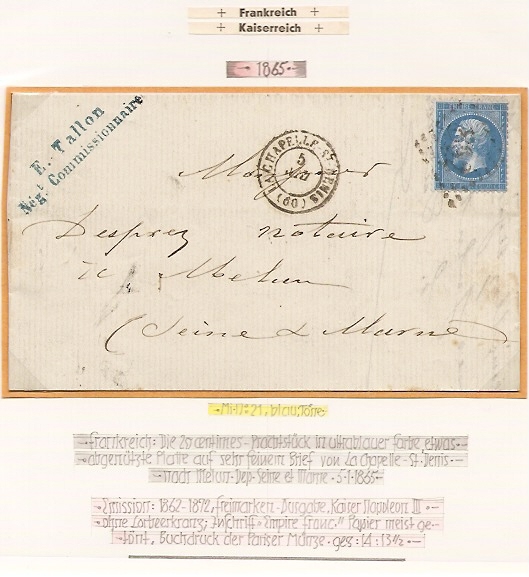 + Frankreich +
+ Kaiserreich +
1865
E. Tallon
Négt Commissionnaire
LA CHAPELLE-ST-DENIS (60)
5
EMPIRE FRANC
Monsieur
Desprez notaire
à Melun
(Seine & Marne
Mi.Nr: 21, blau, Type
Frankreich: Die 20 centimes-Prachtstück in ultrablauer Farbe, etwas
abgenützte Platte auf sehr feinem Brief von La Chapelle-St-Denis
nach Melun-Dep-Seine et Marne · 5·1·1865
Emission: 1862-1872, Freimarken-Ausgabe, Kaiser Napoleon III
ohne Lorbeerkranz; Inschrift "Empire franc." Papier meist ge-
tönt, Buchdruck der Pariser Münze · gez: 14:13½